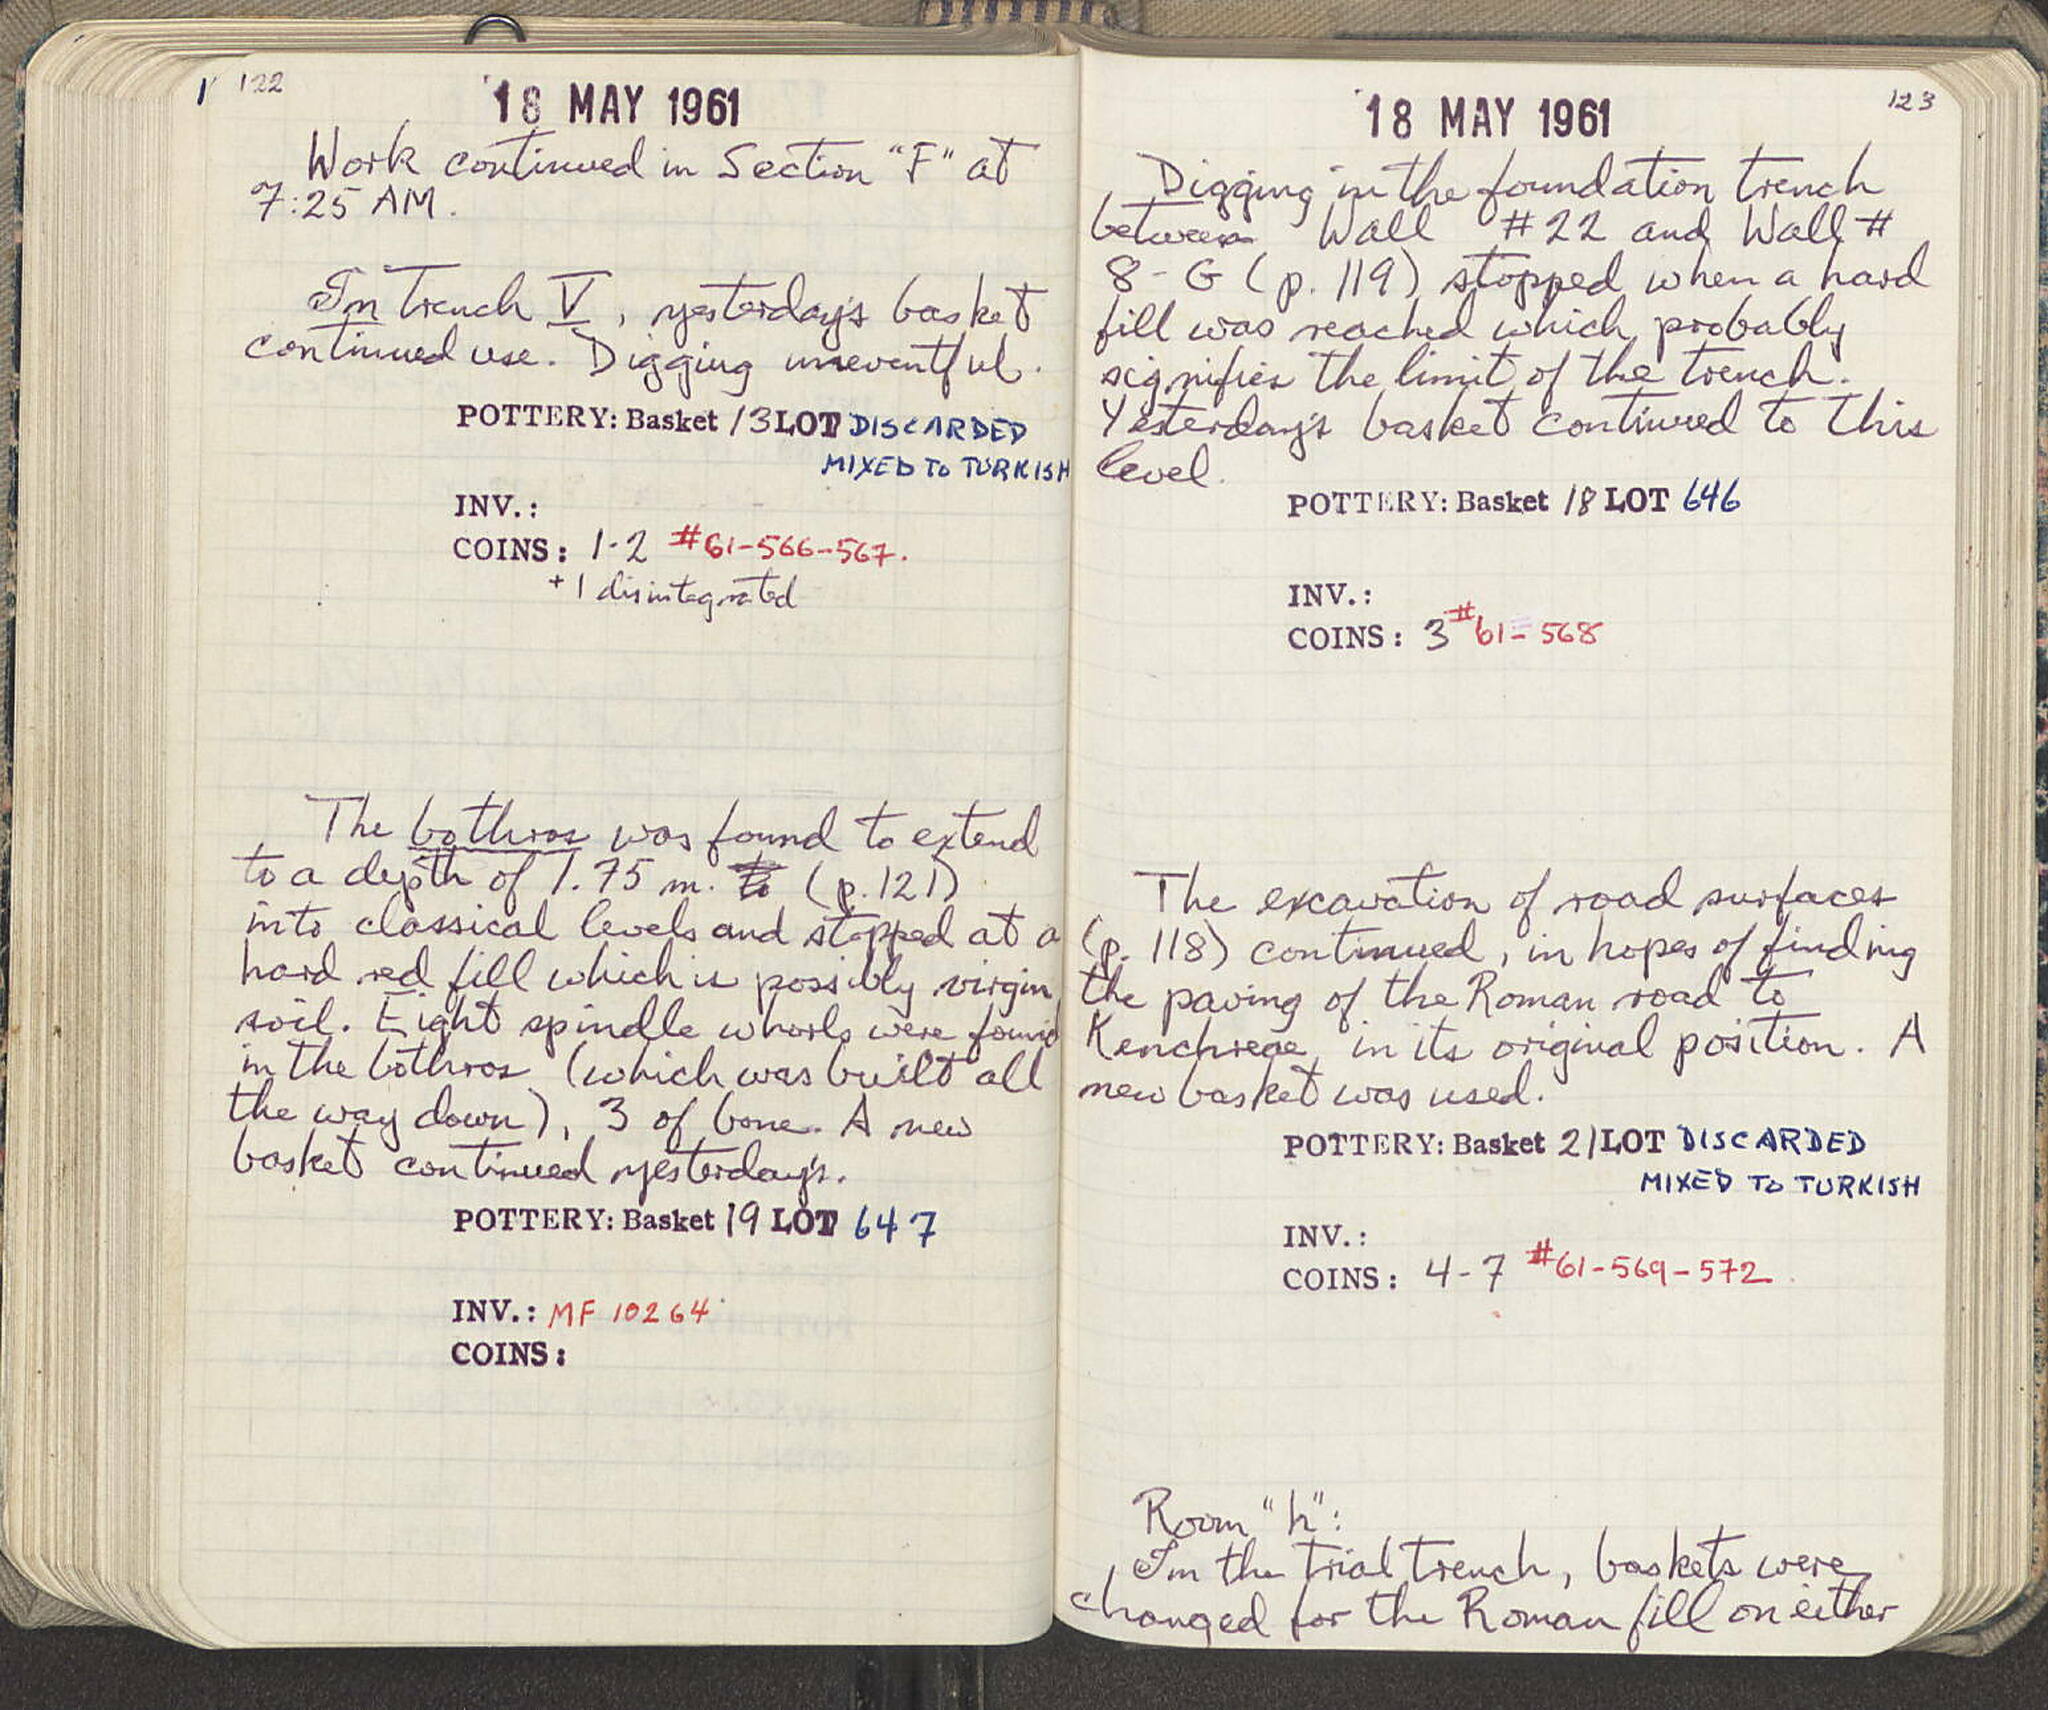 122
18 MAY 1961
Work continued in Section "F" at
7:25 AM.
In Trench V, yesterday's basket
continued use. Digging uneventful.
POTTERY: Basket 13 LOT DISCARDED
MIXED TO TURKISH
INV.:
COINS: 1-2 #61-566-567.
+ 1 disintegrated
The bothros was found to extend
to a depth of 1.75 m. to (p.121)
into classical levels and stopped at a
hard red fill which is possibly virgin
soil. Eight spindle whorls were found
in the bothros (which was built all
the way down), 3 of bone. A new
basket continued yesterday's.
POTTERY: Basket 19 LOT 647
INV.: MF 10264
COINS:
123
18 MAY 1961
Digging in the foundation trench
between Wall #22 and Wall #
8-G (p. 119) stopped when a hard
fill was reached which probably
signifies the limit of the trench.
Yesterday's basket continued to this
level.
POTTERY: Basket 18 LOT 646
INV.:
COINS: 3 #61-568
The excavation of road surfaces
(p. 118) continued, in hopes of finding
the paving of the Roman road to
Kenchreae in its original position. A
new basket was used.
POTTERY: Basket 21 LOT DISCARDED
MIXED TO TURKISH
INV.:
COINS: 4-7 #61-569-572
Room "h":
In the trial trench, baskets were
changed for the Roman fill on either